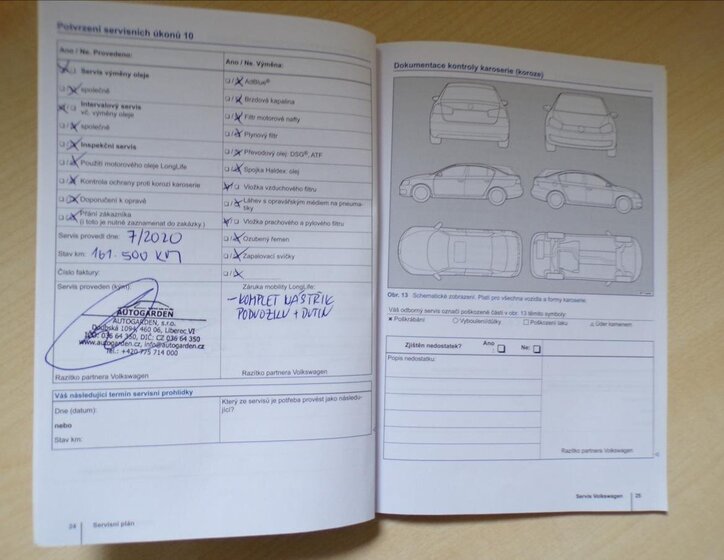 Potvrzení servisních úkonů 10
Ano / Ne. Provedeno:
Servis výměny oleje
společně
Intervalový servis
vč. výměny oleje
společně
Inspekční servis
Použití motorového oleje LongLife
Kontrola ochrany proti korozi karoserie
Doporučení k opravě
Přání zákazníka
(i toto je nutné zaznamenat do zakázky.)
Servis provedl dne: 7/2020
Stav km: 161.500 KM
Číslo faktury:
Servis proveden (kým):
AUTOGARDEN
AUTOGARDEN, s.r.o.
Doubská 1094, 460 06, Liberec VI
IČO: 036 64 350, DIČ: CZ 036 64 350
www.autogarden.cz, info@autogarden.cz
Tel.: +420 775 714 000
Razítko partnera Volkswagen
Ano / Ne. Výměna:
AdBlue®
Brzdová kapalina
Filtr motorové nafty
Plynový filtr
Převodový olej: DSG®, ATF
Spojka Haldex: olej
Vložka vzduchového filtru
Láhev s opravářským médiem na pneuma-
tiky
Vložka prachového a pylového filtru
Ozubený řemen
Zapalovací svíčky
Záruka mobility LongLife:
- KOMPLET NÁSTŘIK
PODVOZKU + DUTIN
Razítko partnera Volkswagen
Váš následující termín servisní prohlídky
Dne (datum):
nebo
Stav km:
Který ze servisů je potřeba provést jako následu-
jící?
24 Servisní plán
Dokumentace kontroly karoserie (koroze)
Obr. 13 Schematické zobrazení. Platí pro všechna vozidla a formy karoserie.
Váš odborný servis označí poškozené části v obr. 13 těmito symboly:
× Poškrábání ○ Vybouleni/důlky □ Poškození laku △ Úder kamenem
Zjištěn nedostatek? Ano : Ne:
Popis nedostatku:
Razítko partnera Volkswagen
Servis Volkswagen 25